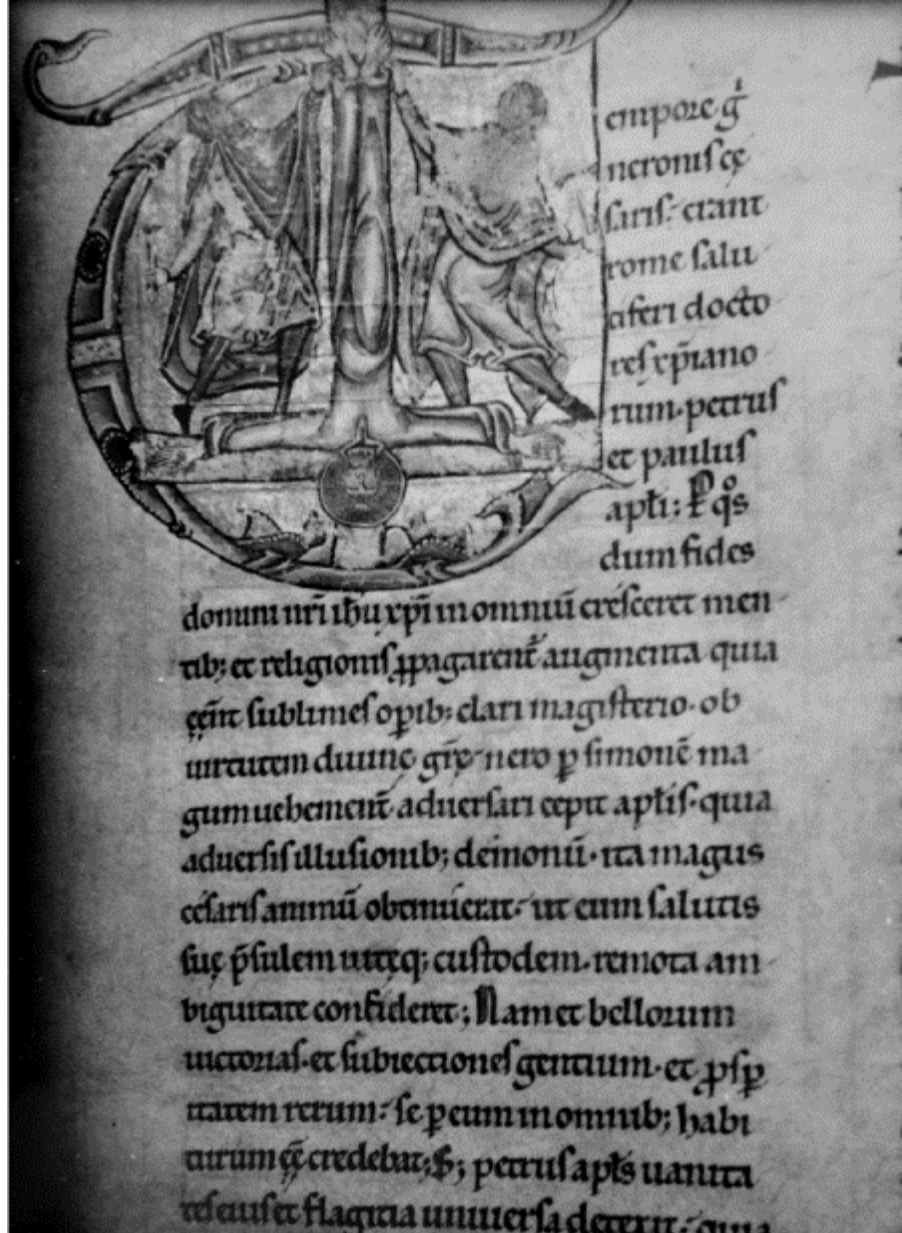 empore g̊
neronis cę
saris. erant
rome salu
aferi docto
res xp̄iano
rum. petrus
et paulus
apl̄i: P̄ q̊s
dum fides
domini nr̄i ih̄u xp̄i in omniū cresceret men
tib; et religionis ꝓpagarent᷑ augmenta quia
ęēnt sublimes oꝑib; clari magisterio. ob
uirtutem diuine gr̄ę. nero ꝑ simonē ma
gum uehement᷑ aduersari cepit apl̄is. quia
aduersis illusionib; demonū. ita magus
cęsaris animū obtinuerat. ut eum salutis
suę p̄sulem uitęq; custodem. remota am
biguitate confideret; Nam et bellorum
uictorias. et subiectiones gentium. et ꝓsꝑ
itatem rerum. se ꝑ eum in omnib; habi
turum ęē credebat; S; petrus apl̄s uanita
tes eius et flagitia uniuersa detexit. quia